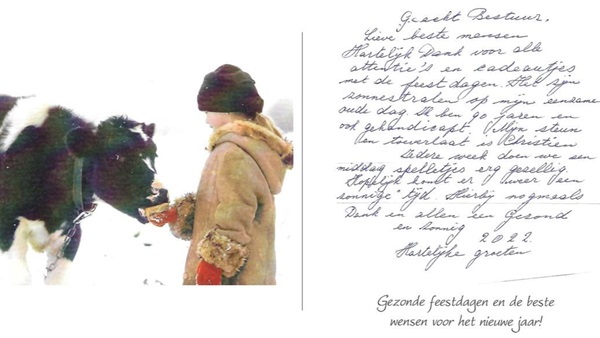 Geacht Bestuur,
Lieve beste mensen
Hartelijk Dank voor alle
attentie's en cadeautjes
met de feestdagen. Het zijn
zonnestralen op mijn eenzame
oude dag. Ik ben 90 jaren en
ook gehandicapt. Mijn steun
en toeverlaat is Christien
Iedere week doen we een
middag spelletjes erg gezellig.
Hopelijk komt er weer een
zonnige tijd. Hierbij nogmaals
Dank en allen een Gezond
en zonnig 2022.
Hartelijke groeten
Gezonde feestdagen en de beste
wensen voor het nieuwe jaar!